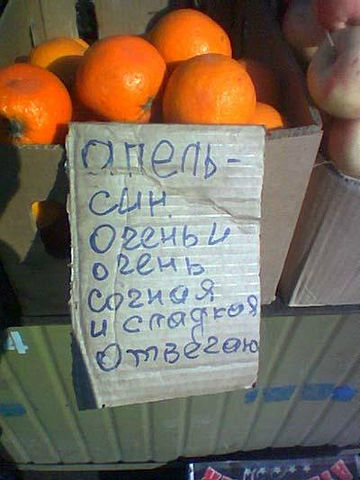 апель-
син
Очень и
очень
сочная
и сладкая
Отвечаю
4